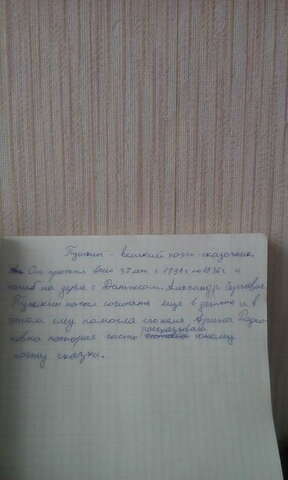 Пушкин - великий поэт-сказочник
Он прожил всего 37 лет с 1799г по 1836г и
погиб на дуэли с Дантесом. Александр Сергеевич
Пушкин начал сочинять ещё в детстве и в
этом ему помогла его няня Арина Родио-
новна которая часто рассказывала юному
поэту сказки.